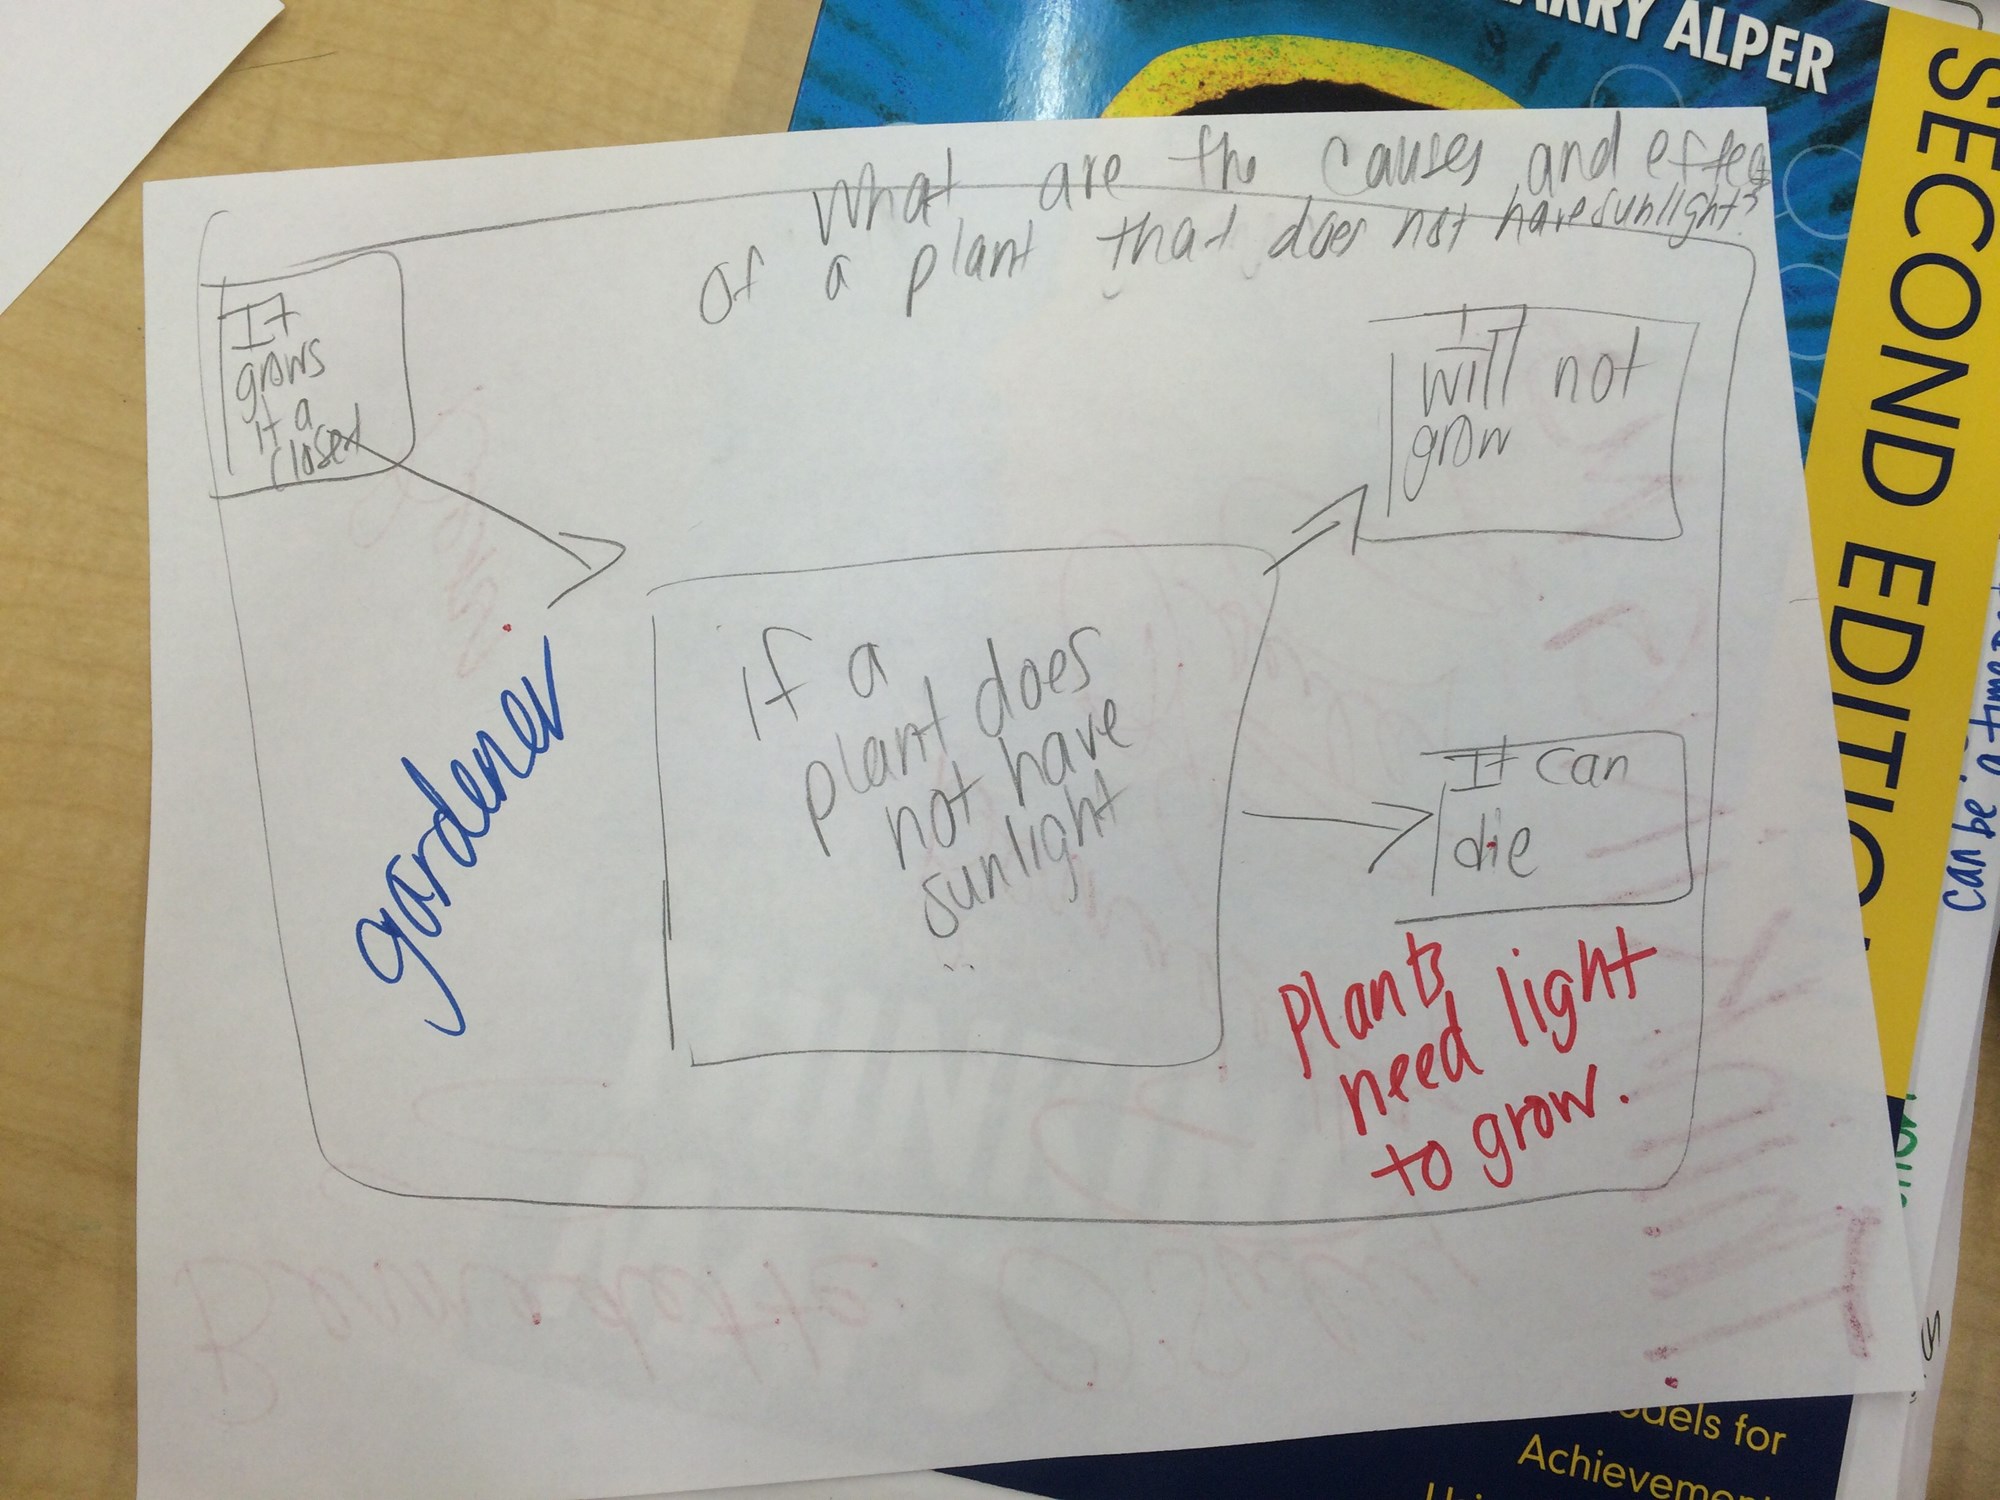 ARRY ALPER
SECOND EDITION
What are the causes and effec
of a plant that does not have sunlight?
It
grows
it a
closet
It
will not
grow
If a
plant does
not have
sunlight
It can
die
gardener
Plants
need light
to grow.
can be a time
dels for
Achievement